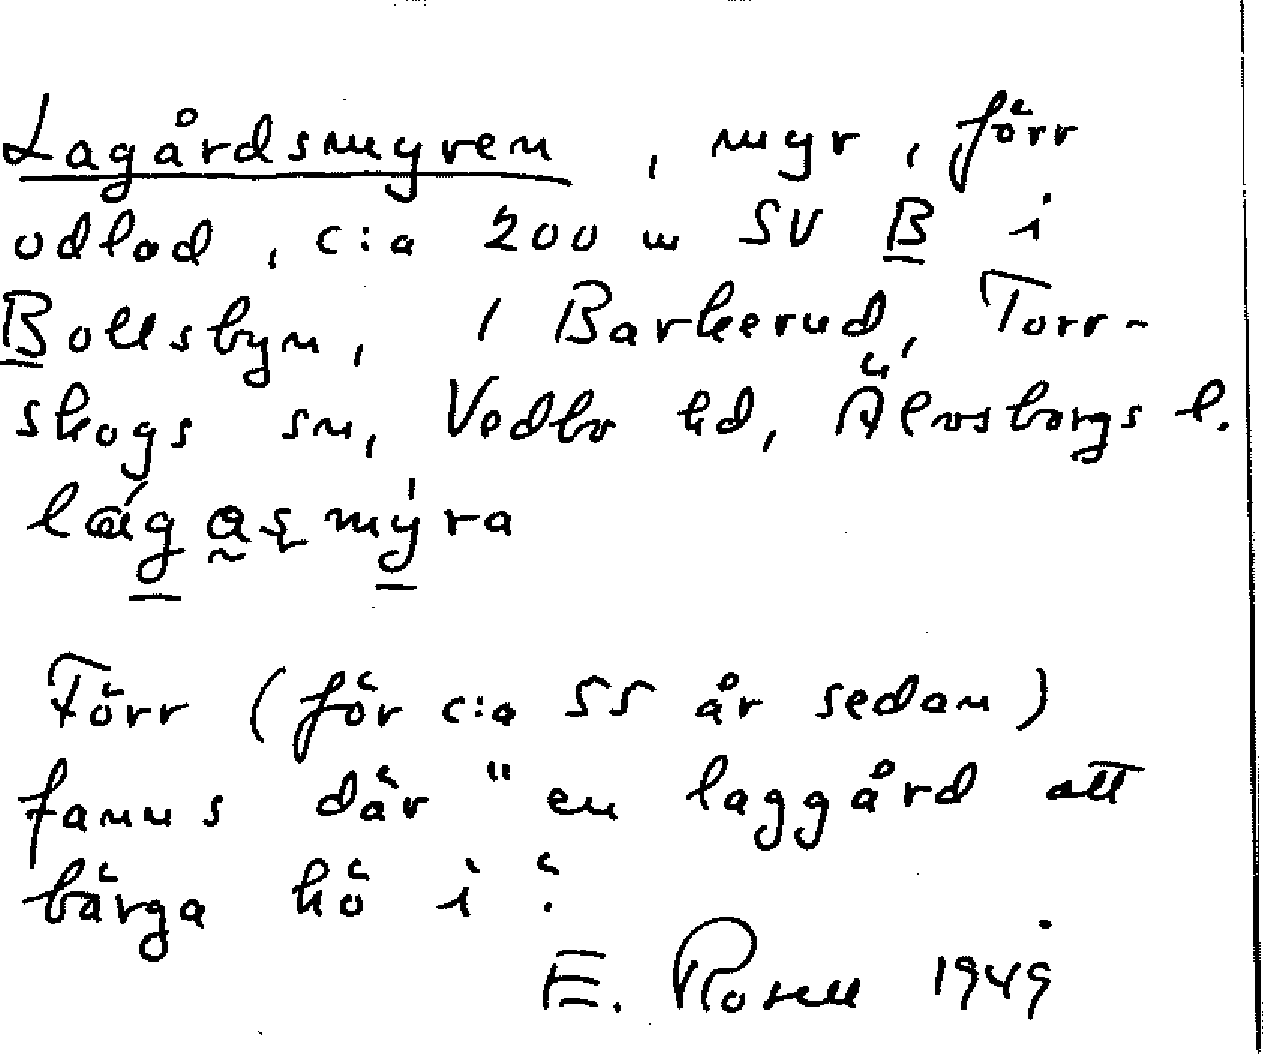 Lagårdsmyren, myr, förr
odlad, c:a 200 m SV B i
Bollsbyn, 1 Barkerud, Torr-
skogs sn, Vedbo hd, Älvsborgs l.
Förr (för c:a 55 år sedan)
fanns där "en laggård att
bärga hö i".
E. Rosell 1949